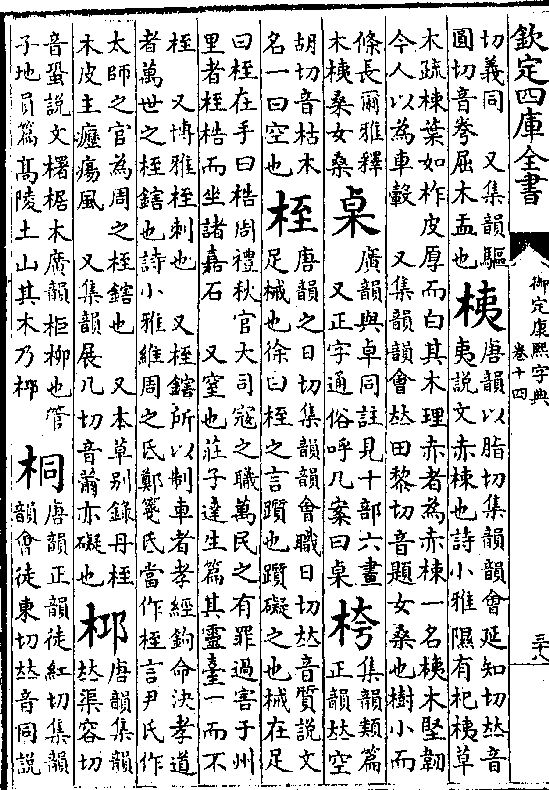 欽定四庫全書
御定康熙字典
卷十四
三十八
切義同 又集韻驅
圓切音弮屈木盂也
桋
唐韻以脂切集韻韻會延知切𠀤音
夷說文赤楝也詩小雅隰有杞桋草
木疏楝葉如柞皮厚而白其木理赤者為赤楝一名桋木堅韌
今人以為車轂 又集韻韻會𠀤田黎切音題女桑也樹小而
條長爾雅釋
木桋桑女桑
桌
廣韻與卓同註見十部六畫
又正字通俗呼几案曰桌
桍
集韻類篇
正韻𠀤空
胡切音枯木
名一曰空也
桎
唐韻之日切集韻韻會職日切𠀤音質說文
足械也徐曰桎之言躓也躓礙之也械在足
曰桎在手曰梏周禮秋官大司寇之職萬民之有罪過害于州
里者桎梏而坐諸嘉石 又窒也莊子達生篇其靈臺一而不
桎 又博雅桎刺也 又桎鎋所以制車者孝經鉤命決孝道
者萬世之桎鎋也詩小雅維周之氐鄭箋氐當作桎言尹氏作
太師之官為周之桎鎋也 又本草别錄丹桎
木皮主癧瘍風 又集韻展几切音黹亦礙也
桏
唐韻集韻
𠀤渠容切
音蛩說文樗椐木廣韻柜柳也管
子地員篇高陵土山其木乃桏
桐
唐韻正韻徒紅切集韻
韻會徒東切𠀤音同說